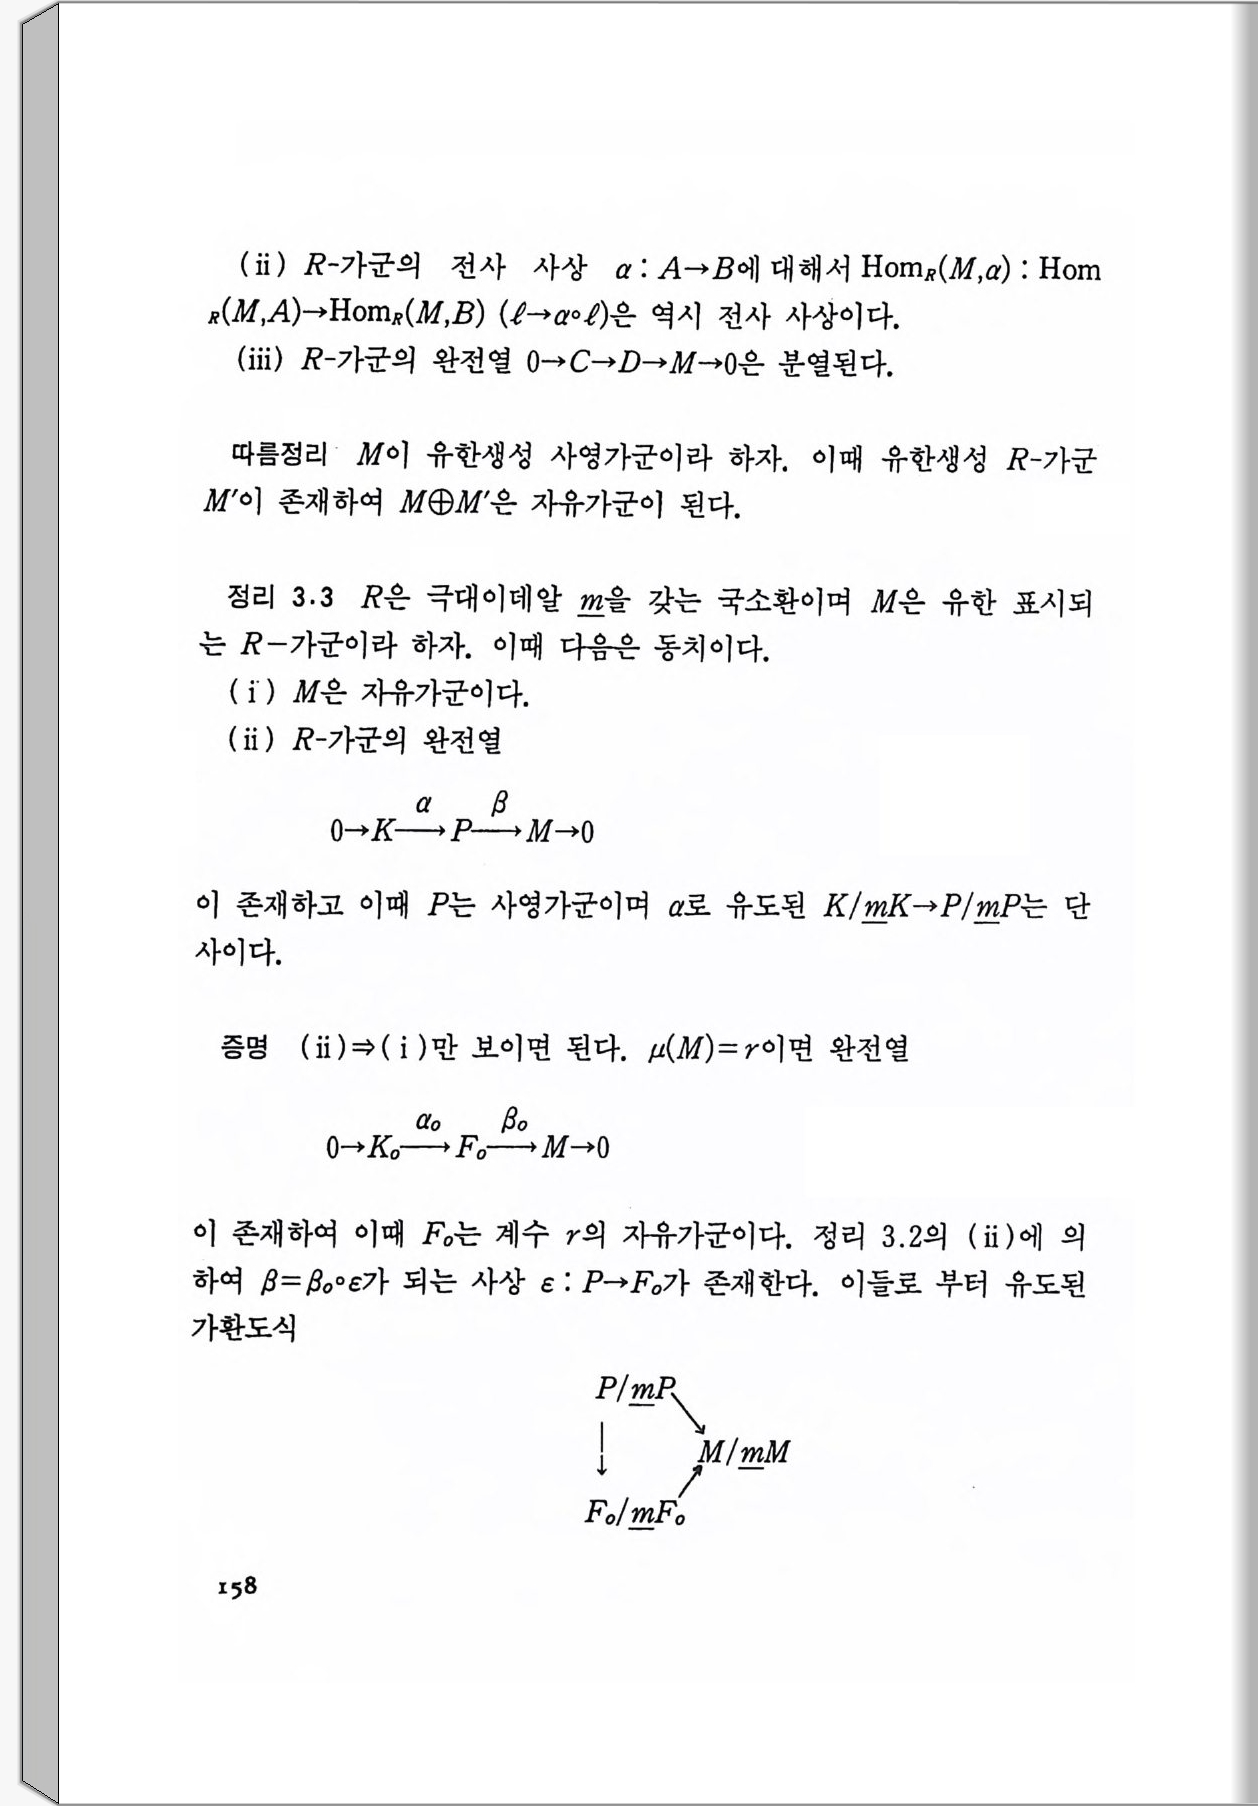 (ii) R-가군의 전사 사상 α : A→B에 대해서 Hom_R(M,α) : Hom
_R(M,A)→Hom_R(M,B) (ℓ→α∘ℓ)은 역시 전사 사상이다.
(iii) R-가군의 완전열 0→C→D→M→0은 분열된다.
따름정리 M이 유한생성 사영가군이라 하자. 이때 유한생성 R-가군
M′이 존재하여 M⊕M′은 자유가군이 된다.
정리 3.3 R은 극대이데알 m을 갖는 국소환이며 M은 유한 표시되
는 R-가군이라 하자. 이때 다음은 동치이다.
(i) M은 자유가군이다.
(ii) R-가군의 완전열
α β
0→K→P→M→0
이 존재하고 이때 P는 사영가군이며 α로 유도된 K/mK→P/mP는 단
사이다.
증명 (ii)⇒(i)만 보이면 된다. μ(M)=r이면 완전열
α₀ β₀
0→K₀→F₀→M→0
이 존재하여 이때 F₀는 계수 r의 자유가군이다. 정리 3.2의 (ii)에 의
하여 β=β₀∘ε가 되는 사상 ε : P→F₀가 존재한다. 이들로 부터 유도된
가환도식
P/mP
↓ M/mM
F₀/mF₀
158